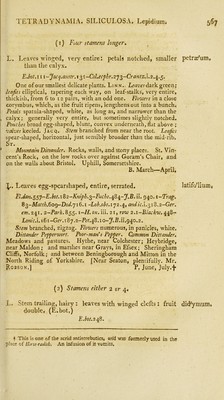 TETRADYNAMIA. SILICULOSA. Lepidium. 567
(1) Four stamens longer.
L. Leaves winged, very entire: petals notched, smaller petræ'um.
than the calyx.
E.bot.111-Jacq.austr.131-Col.ecphr.273-Crantz.i.2.4.5.
One of our smallest delicate plants. LINN. Leaves dark green;
leafits elliptical, tapering each way, on leaf-stalks, very entire,
thickish, from 6 to 12 pair, with an odd one. Flowers in a close
corymbus, which, as the fruit ripens, lengthens out into a bunch.
Petals spatula-shaped, white, as long as, and narrower than the
calyx; generally very entire, but sometimes slightly notched.
Pouches broad egg-shaped, blunt, convex underneath, flat above;
valves keeled. JACQ. Stem branched from near the root. Leafits
spear-shaped, horizontal, just sensibly broader than the mid-rib.
ST.
Mountain Dittander. Rocks, walls, and stony places. St. Vin-
cent's Rock, on the low rocks over against Goram's Chair, and
on the walls about Bristol. Uphill, Somersetshire.
B. March—April.
L. Leaves egg-spearshaped, entire, serrated. latifo'lium.
Stem branched, zigzag. Flowers numerous, in panicles, white.
Dittander Pepperwort. Poor-man's Pepper. Common Dittander.
Meadows and pastures. Hythe, near Colchester; Heybridge,
near Maldon; and marshes near Grays, in Essex; Sheringham
Cliffs, Norfolk; and between Beningborough and Mitton in the
North Riding of Yorkshire. [Near Seaton, plentifully. Mr.
ROBSON.] P. June, July.†
(2) Stamens either 2 or 4.
L. Stem trailing, hairy: leaves with winged clefts: fruit did'ymum.
double. (E.bot.)
E.bot.248.
† This is one of the acrid antiscorbutics, and was formerly used in the
place of Horse-radish. An infusion of it vomits.